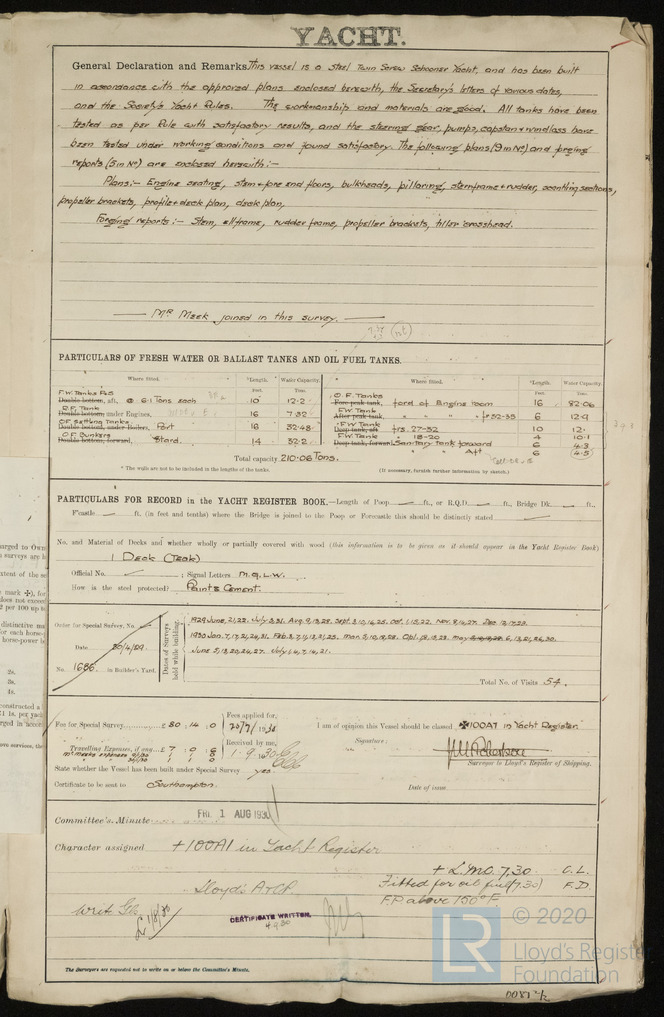 YACHT.
General Declaration and Remarks. This vessel is a Steel Twin Screw Schooner Yacht, and has been built
in accordance with the approved plans enclosed herewith, the Secretary's letters of various dates,
and the Society's Yacht Rules. The workmanship and materials are good. All tanks have been
tested as per Rule with satisfactory results, and the steering gear, pumps, capstan & windlass have
been tested under working conditions and found satisfactory. The following plans (9 in No) and forging
reports (5 in No) are enclosed herewith:-
Plans:- Engine seating, stem & fore end floors, bulkheads, pillaring, sternframe & rudder, scantling sections,
propeller brackets, profile & deck plan, deck plan,
Forging reports:- Stem, sternframe, rudder frame, propeller brackets, tiller crosshead.
Mr Meek joined in this survey.
PARTICULARS OF FRESH WATER OR BALLAST TANKS AND OIL FUEL TANKS.
Where fitted. *Length. Water Capacity. Where fitted. *Length. Water Capacity.
Feet. Tons. Feet. Tons.
F.W. Tanks P&S
Double bottom, aft, @ 6.1 Tons each 10 12.2 O.F. Tanks Fore peak tank, ford of Engine room 16 82.06
Double bottom, under Engines, 16 7.32 F.W. Tank After peak tank, " " " frs 32-35 6 12.9
O.F. Settling Tanks Double bottom, under boilers, Port 16 32.48 F.W. Tank Deep tank, aft frs. 27-32 10 12.
O.F. Bunkers Double bottom, forward, Stard. 14 32.2 F.W. Tank " 18-20 4 10.1
Deep tank, forward Sanitary tank forward 6 4.3
" " Aft 6 4.5
Total capacity 210.06 Tons.
* The wells are not to be included in the lengths of the tanks. (If necessary, furnish further information by sketch.)
PARTICULARS FOR RECORD in the YACHT REGISTER BOOK.—Length of Poop ft., or R.Q.D. ft., Bridge Dk. ft.,
F'castle ft. (in feet and tenths) where the Bridge is joined to the Poop or Forecastle this should be distinctly stated
No. and Material of Decks and whether wholly or partially covered with wood (this information is to be given as it should appear in the Yacht Register Book)
1 Deck (Teak)
Official No. ; Signal Letters M.Q.L.W.
How is the steel protected? Paint & Cement.
Order for Special Survey, No.
Date 30/4/29
No. 1686 in Builder's Yard.
Dates of Surveys held while building.
Total No. of Visits 54.
Fee for Special Survey £ 80 : 14 : 0
Travelling Expenses, if any £ 7 : 0 : 6
Fees applied for, 20/7/1930
Received by me, 1.9.30
I am of opinion this Vessel should be classed ✠100A1 in Yacht Register.
Signature:
Surveyor to Lloyd's Register of Shipping.
State whether the Vessel has been built under Special Survey yes.
Certificate to be sent to Southampton. Date of issue
Committee's Minute FRI. 1 AUG 1930
Character assigned +100A1 in Yacht Register
+ L.M.C. 7.30 C.L.
Lloyd's A & C.P. Fitted for oil fuel (7.30) F.D.
F.P. above 150°F.
CERTIFICATE WRITTEN.
4.9.30
The Surveyors are requested not to write on or below the Committee's Minute.
LR © 2020
Lloyd's Register
Foundation